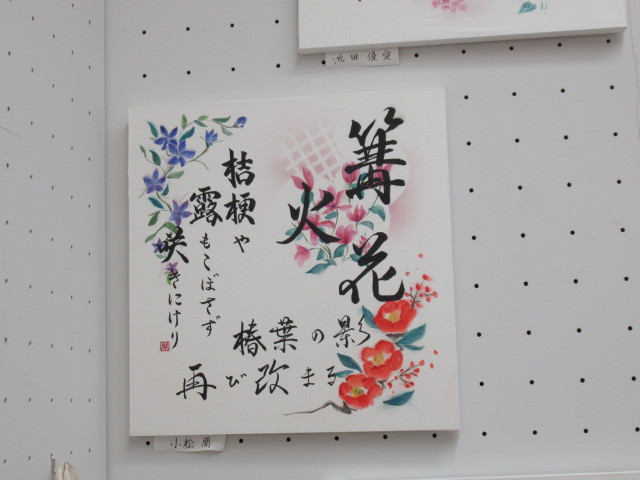 篝火花
桔梗や
露もこばさず
咲きにけり
椿葉の影
再び改まる
小松 蘭
池田 優愛